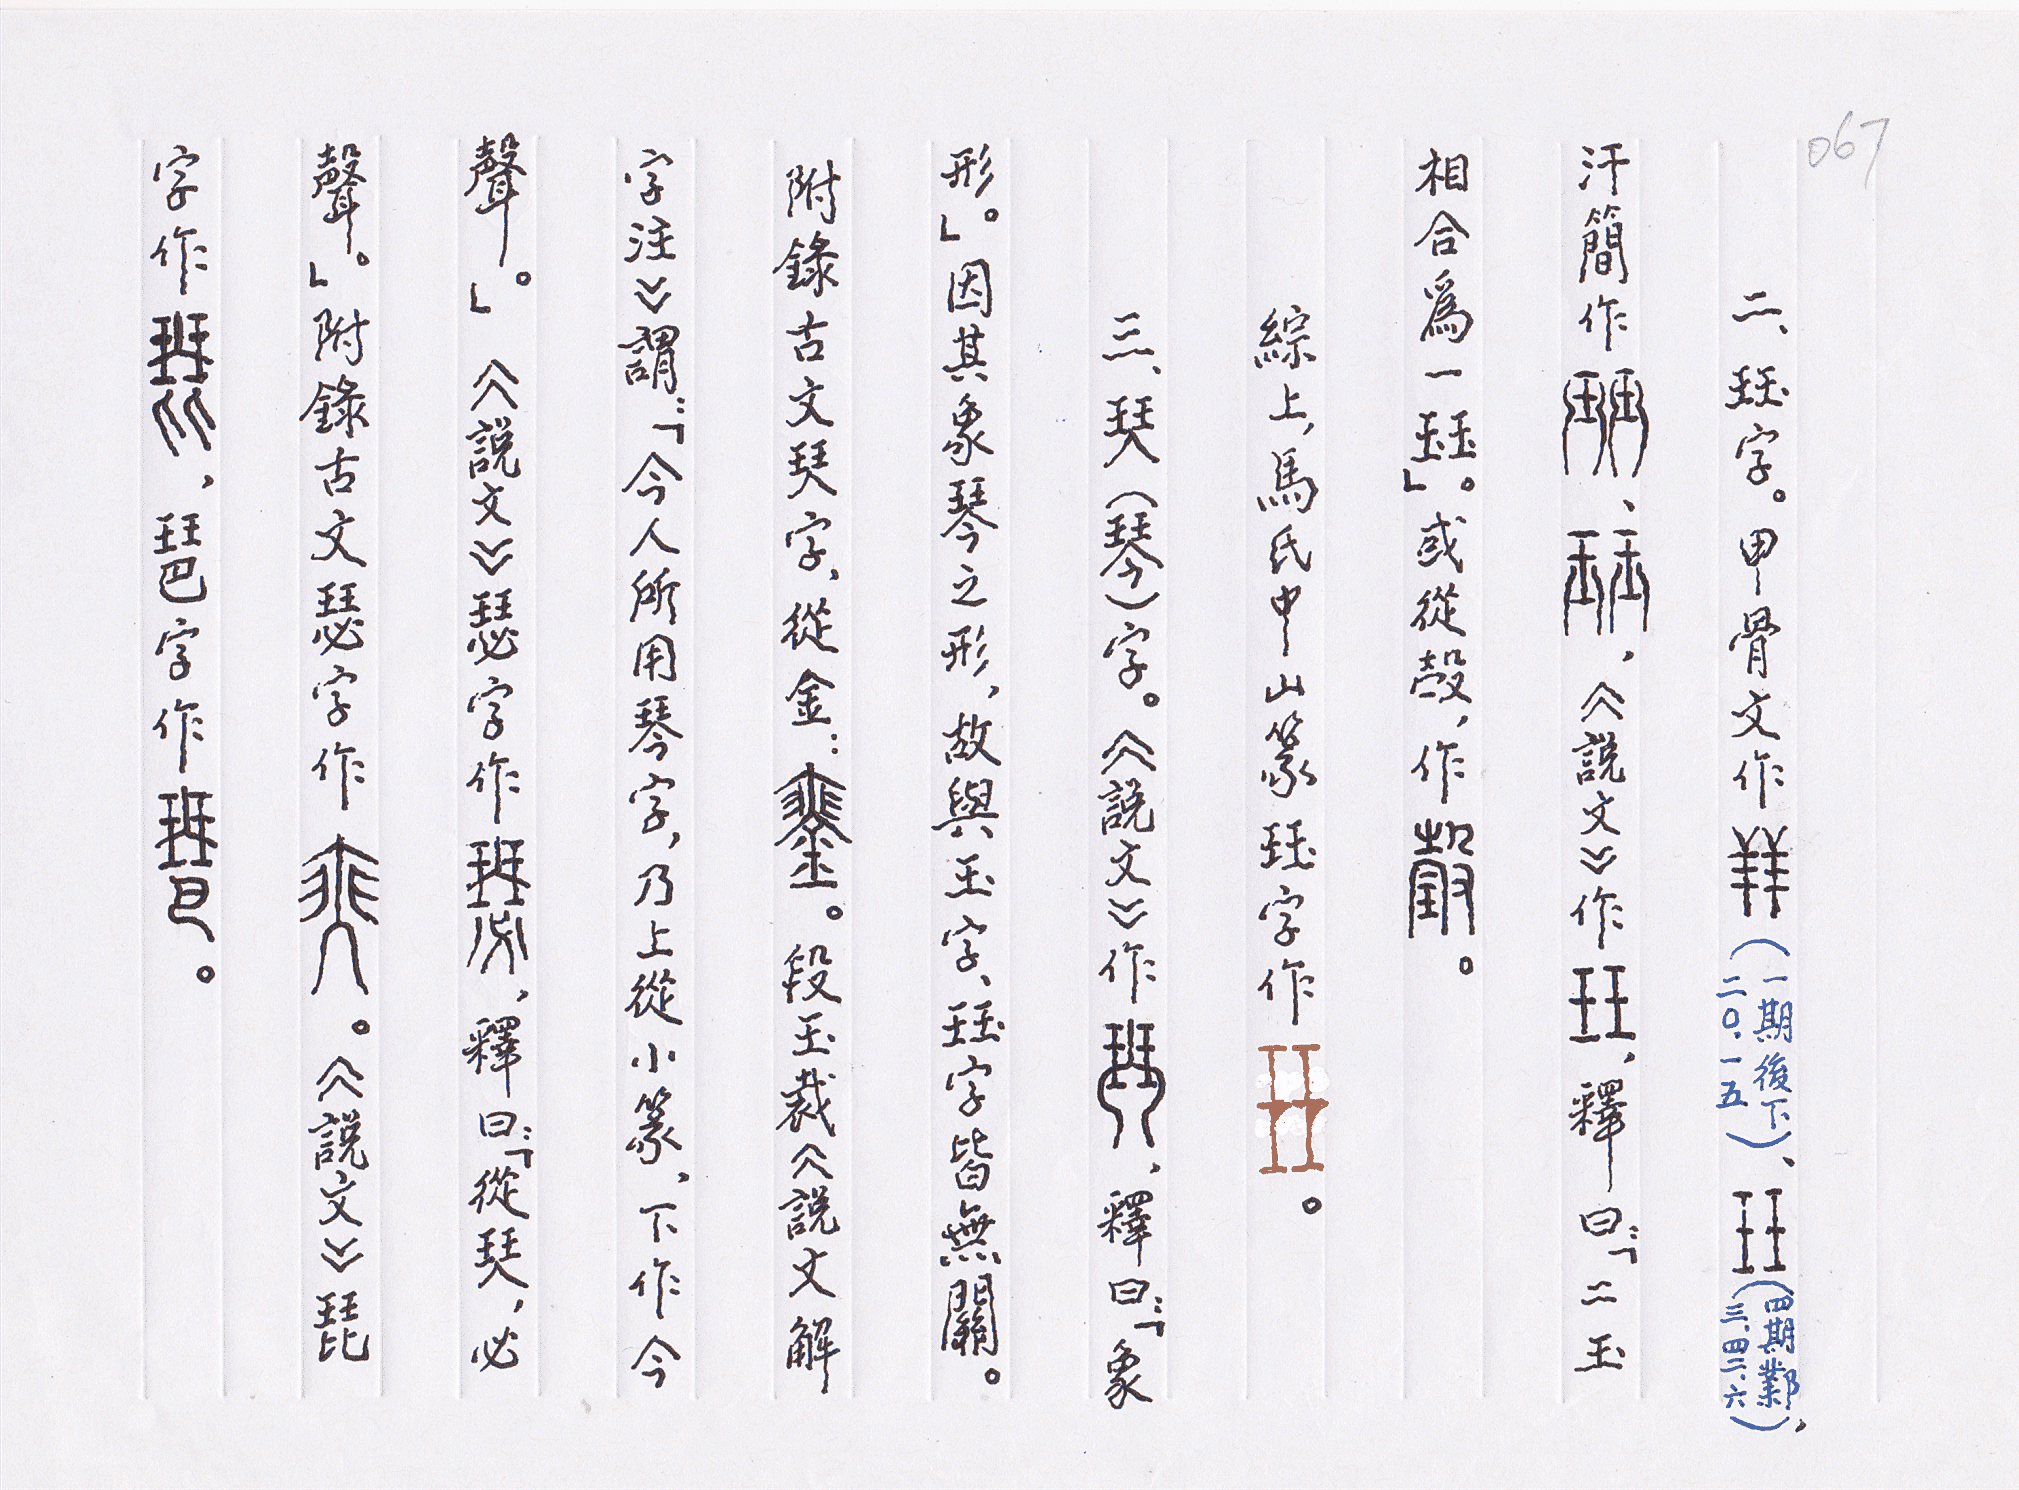 067
二、珏字。甲骨文作（一期後下二〇.一五）、（四期鄴三.四二.六），
汗簡作、，《說文》作，釋曰：「二玉
相合爲一珏」。或從㱿，作。
綜上，馬氏中山篆珏字作。
三、珡（琴）字。《說文》作，釋曰：「象
形。」因其象琴之形，故與玉字、珏字皆無關。
附錄古文珡字，從金：。段玉裁《說文解
字注》謂：「今人所用琴字，乃上從小篆，下作今
聲。」《說文》瑟字作，釋曰：「從珡，必
聲。」附錄古文瑟字作。《說文》琵
字作，琶字作。